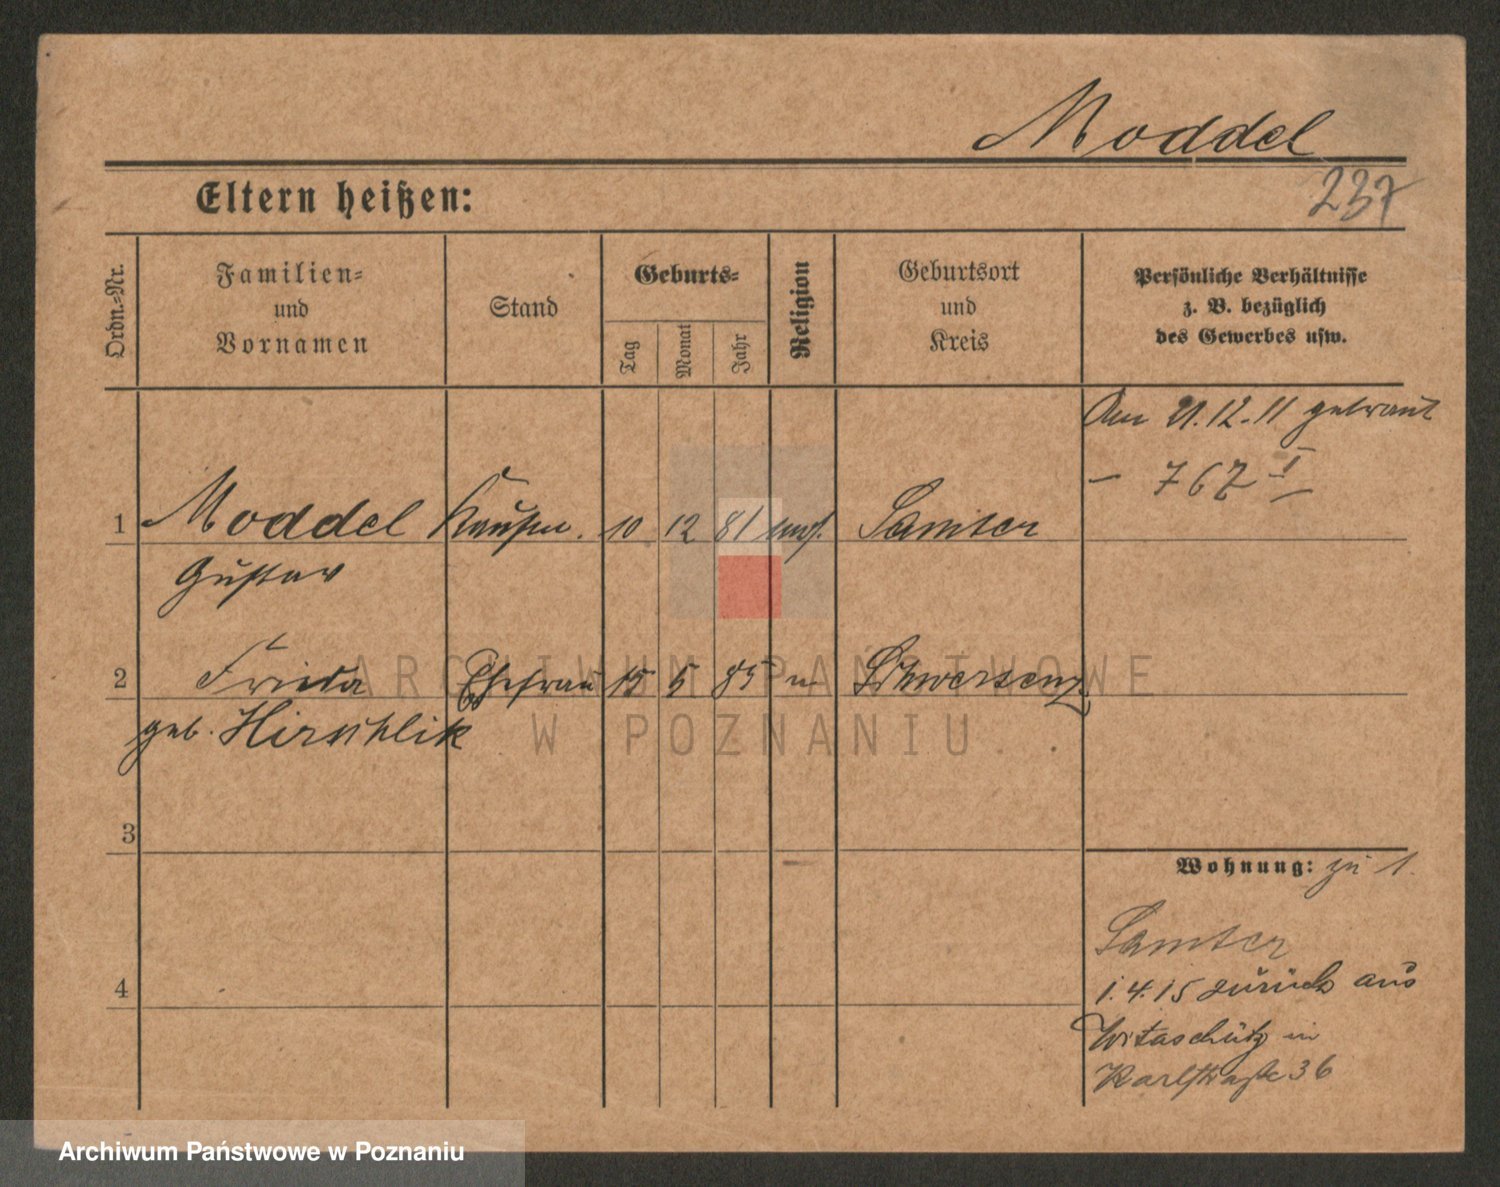 Moddel
237
Eltern heißen:
Ordn.-Nr.
Familien-
und
Vornamen
Stand
Geburts-
Tag
Monat
Jahr
Religion
Geburtsort
und
Kreis
Persönliche Verhältnisse
z. B. bezüglich
des Gewerbes usw.
Am 21.12.11 getraut
- 767 I -
1 Moddel Kaufm. 10 12 81 mos. Samter
Gustav
2 Frieda Ehefrau 15 5 85 " Schwersenz
geb. Hirschlik
3
Wohnung: zu 1.
Samter
4
1.4.15 zurück aus
Witaschütz in
Karlstraße 36
ARCHIWUM PAŃSTWOWE
W POZNANIU
Archiwum Państwowe w Poznaniu